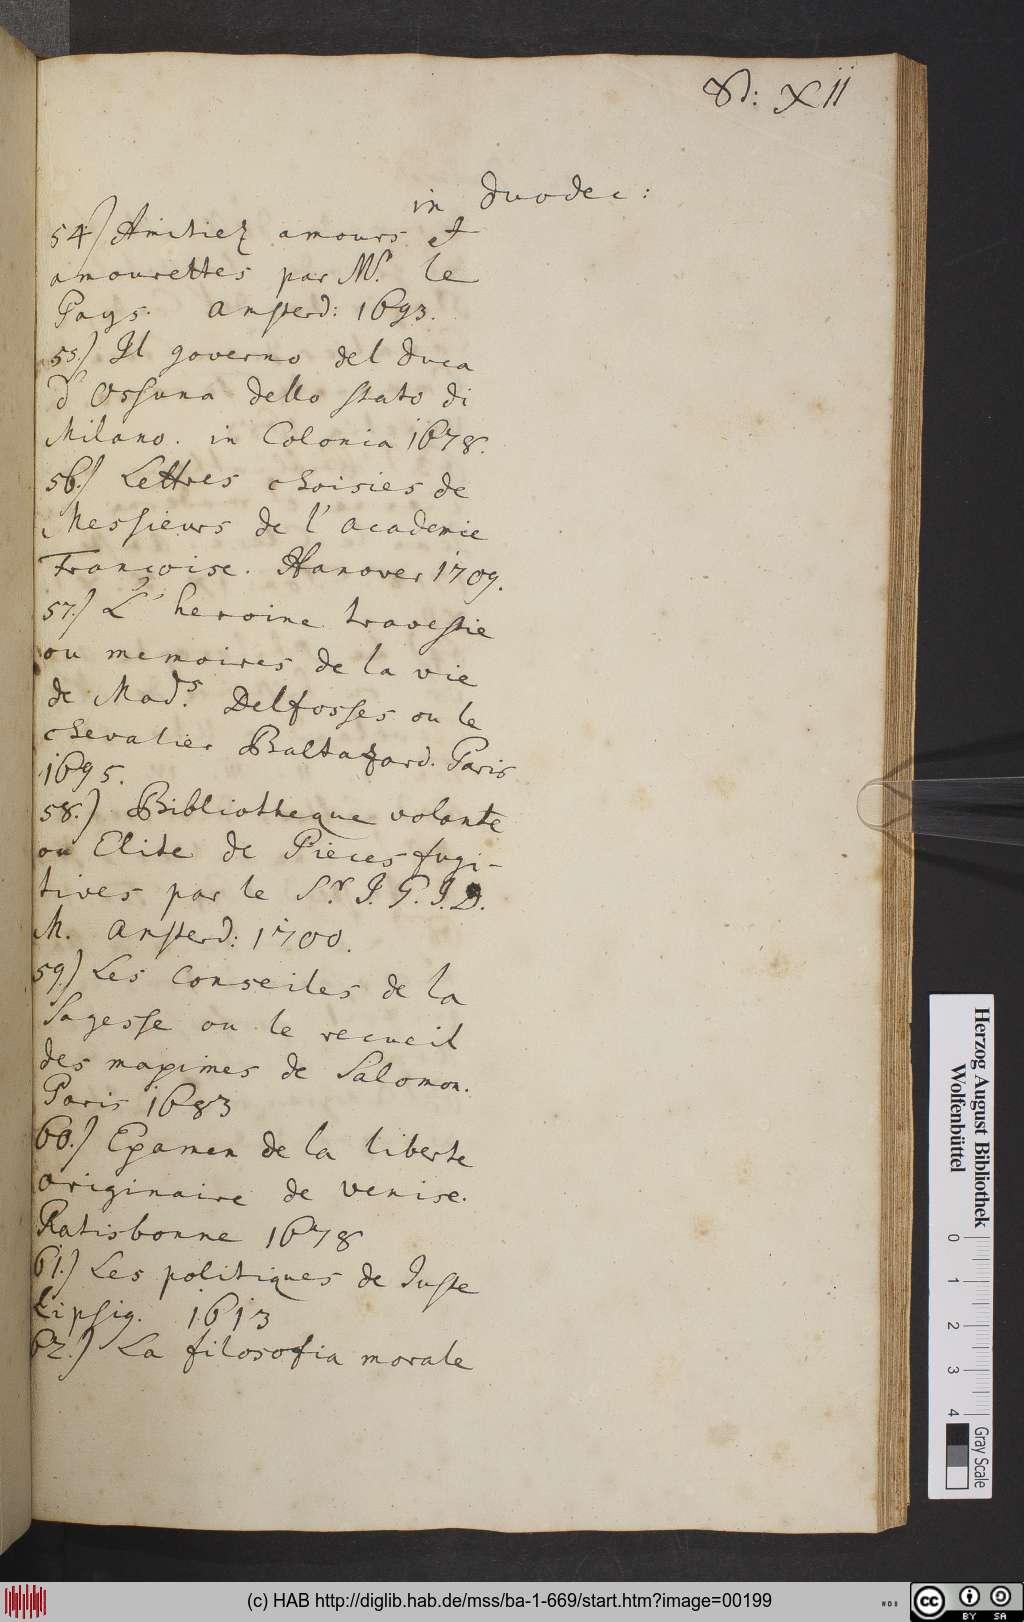 XII
in duodec:
54.) Amitiez amours et
amourettes par Mr. le
Pays. Amsterd: 1693.
55.) Il governo del duca
d'Ossuna dello stato di
Milano. in Colonia 1678.
56.) Lettres choisies de
Messieurs de l'academie
Françoise. Hanover 1709.
57.) L'heroine travestie
ou memoires de la vie
de Mads. Delfosses ou le
chevalier Baltazard. Paris
1695.
58.) Bibliotheque volante
ou Elite de Pieces fugi-
tives par le Sr. J. G. J. D.
M. Amsterd: 1700.
59.) Les Conseiles de la
Sagesse ou le recueil
des maximes de Salomon.
Paris 1683
60.) Examen de la liberte
originaire de venise.
Ratisbonne 1678
61.) Les politiques de Juste
Lipsig. 1613
62.) La filosofia morale
Herzog August Bibliothek
Wolfenbüttel
0 1 2 3 4
Gray Scale
(c) HAB http://diglib.hab.de/mss/ba-1-669/start.htm?image=00199
cc BY SA